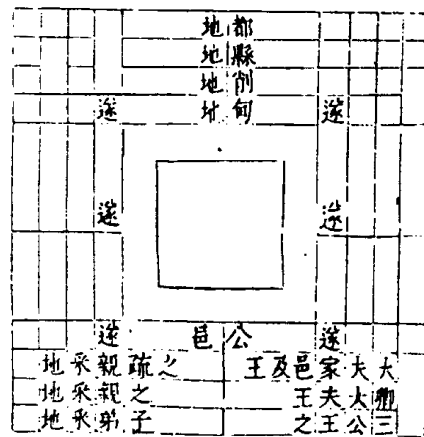 都地
縣地
削地
甸地
遂 遂
遂 遂
遂 公邑 遂
大夫家邑及王之疏親采地
卿大夫王之親采地
三公王之子弟采地